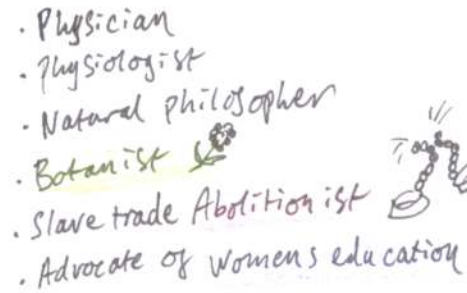 · Physician
· Physiologist
· Natural Philosopher
· Botanist
· Slave trade Abolitionist
· Advocate of Womens education